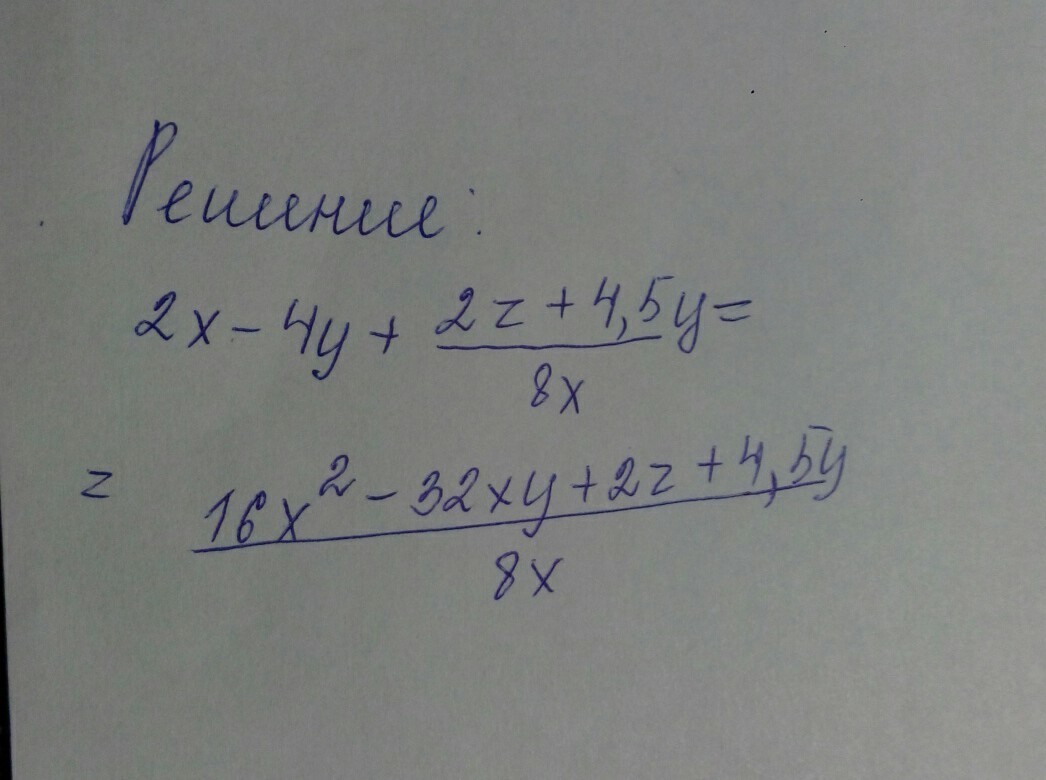 Решение:
2x - 4y + \frac{2z + 4,5y}{8x} =
= \frac{16x^2 - 32xy + 2z + 4,5y}{8x}